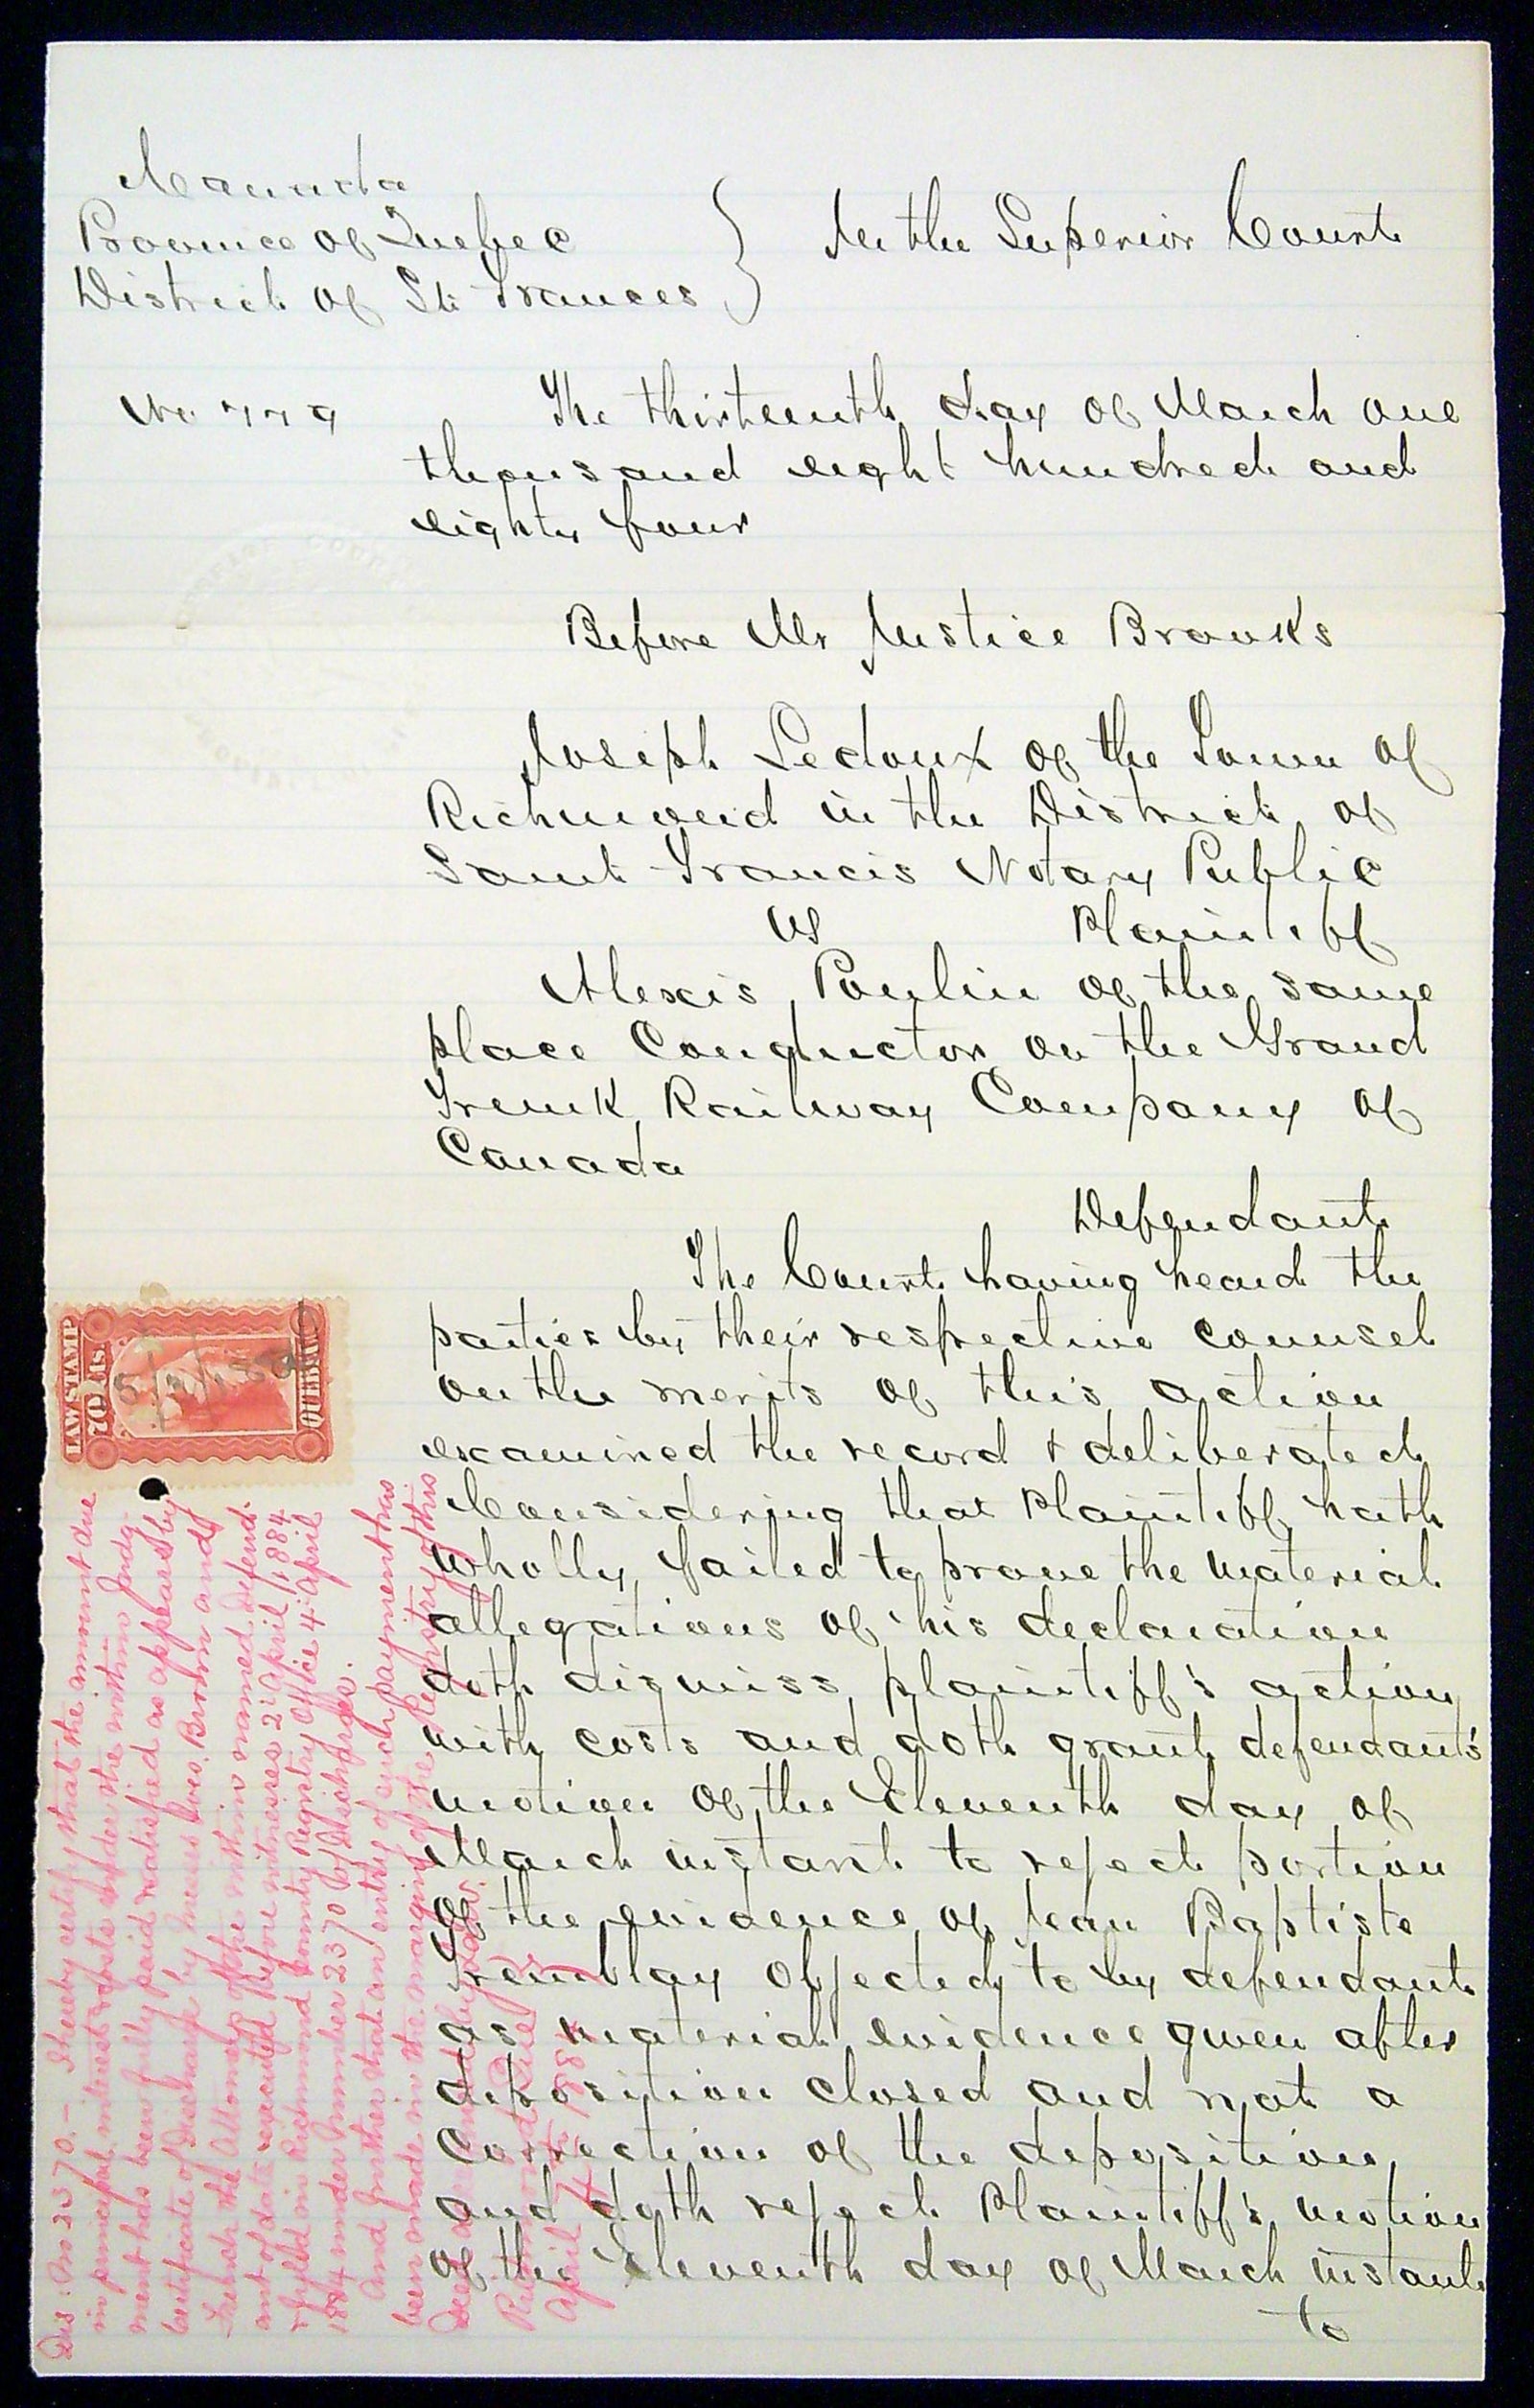 Cannada
Province of Quebec
District of St Frances
In the Superior Court
No 779
The thirteenth day of March one
thousand eight hundred and
eighty four
Before Mr Justice Brooks
Joseph Ledoux of the Town of
Richmond in the District of
Saint Francis Notary Public
vs Plaintiff
Alexis Poulin of the same
place Conductor on the Grand
Trunk Railway Company of
Canada
Defendant
The Court having heard the
parties by their respective counsel
on the merits of this action
examined the record & deliberated
Considering that Plaintiff hath
wholly failed to prove the material
allegations of his declaration
doth dismiss plaintiff's action
with costs and doth grant defendant's
motion of the Eleventh day of
March instant to reject portion
of the evidence of Jean Baptiste
Tremblay objected to by defendant
as material evidence given after
deposition closed and not a
correction of the deposition
and doth reject Plaintiff's motion
of the Eleventh day of March instant
to
LAW STAMP
70 Cts.
QUEBEC
Dis: No 2370. - I hereby certify that the amount due
in principal interest & costs under the within Judg-
ment has been fully paid & satisfied as appears by
Certificate of discharge by Messrs Ives, Brown and
French the Attorneys of the within named Defend-
ant of date executed before witnesses 2d April 1884
& fyled in Richmond County Registry Office 4th April
1884 under Number 2370 of Discharges.
And further that an entry of such payment has
been made in the margin of the Registry of this
Richmond
April 4th 1884